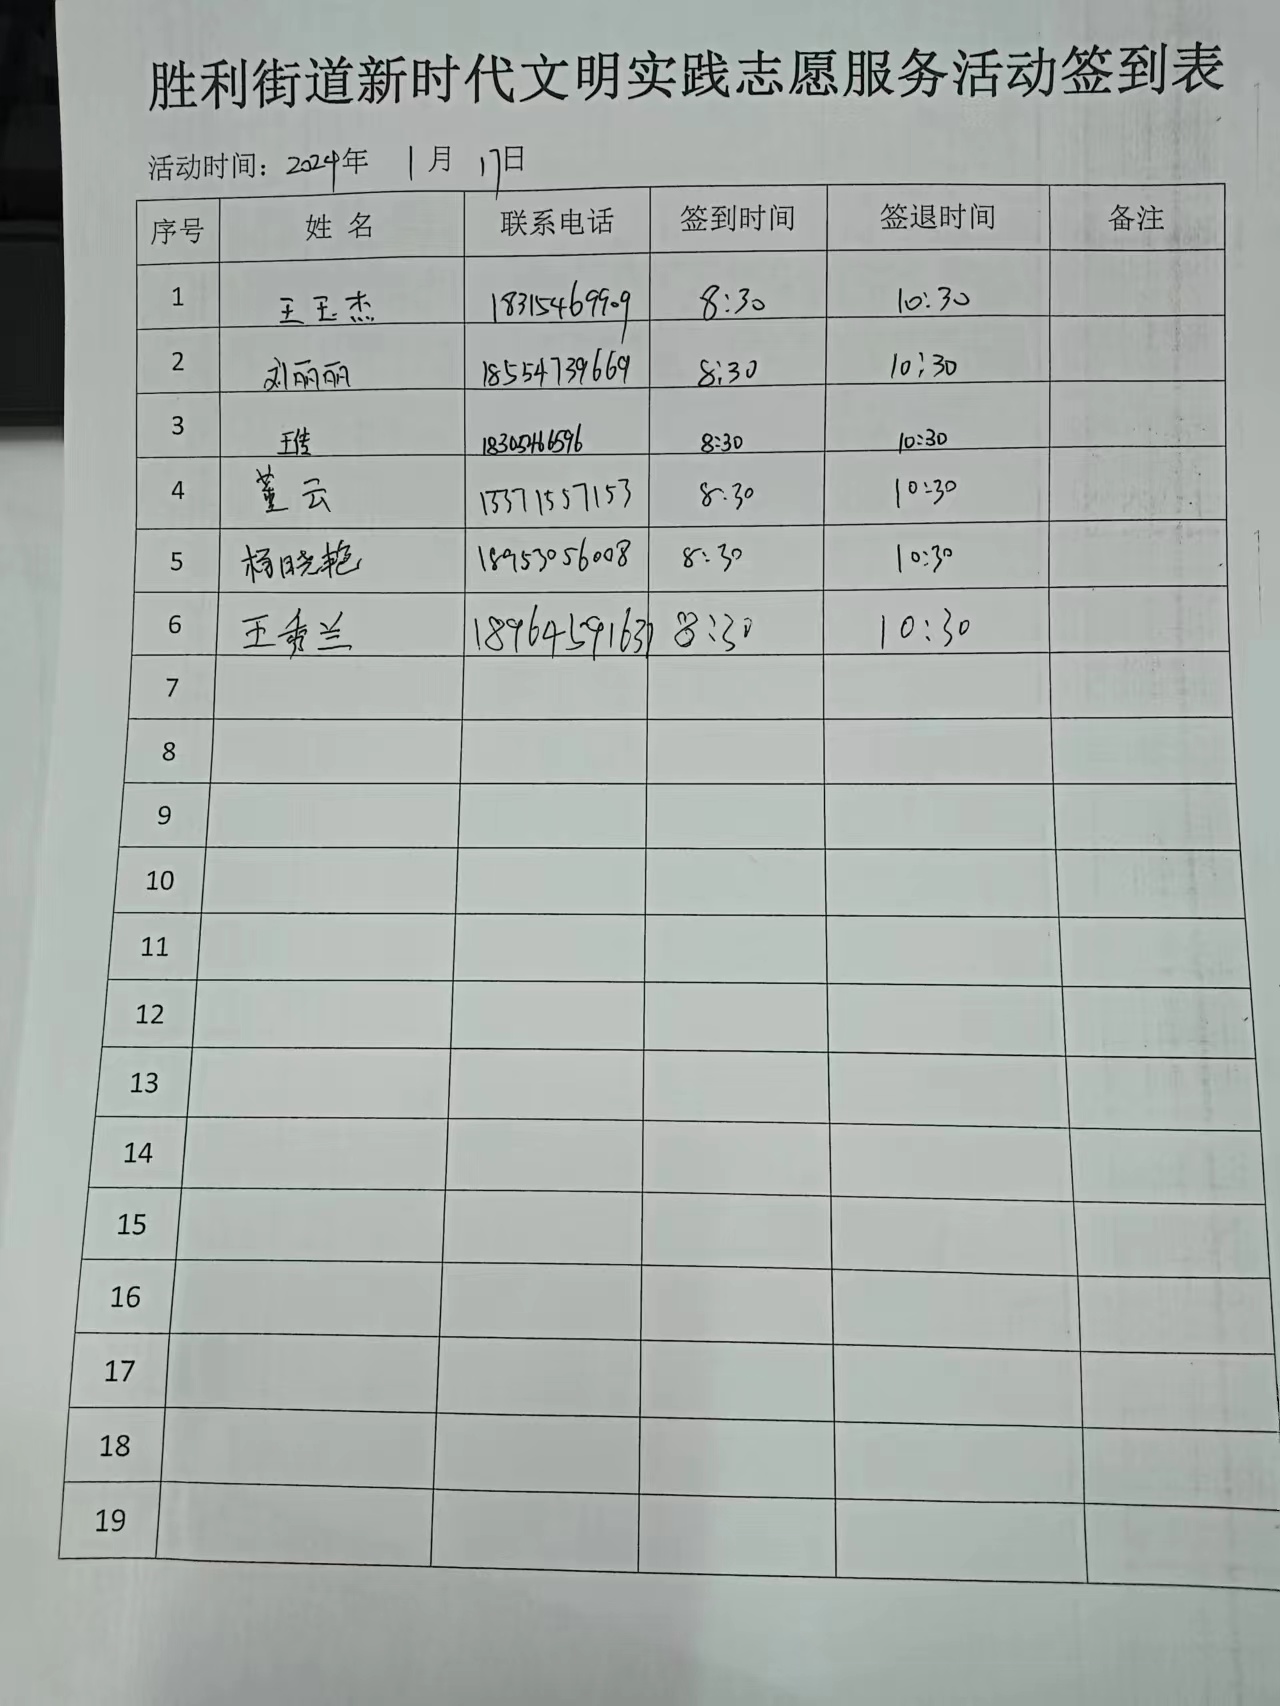 胜利街道新时代文明实践志愿服务活动签到表
活动时间：2024年 1月 17日
序号 姓 名 联系电话 签到时间 签退时间 备注
1 王玉杰 18315469909 8:30 10:30
2 刘丽丽 18554739669 8:30 10:30
3 王佳 18305466596 8:30 10:30
4 董云 13371557153 8:30 10:30
5 杨晓艳 18953056008 8:30 10:30
6 王秀兰 8:30 10:30
7
8
9
10
11
12
13
14
15
16
17
18
19